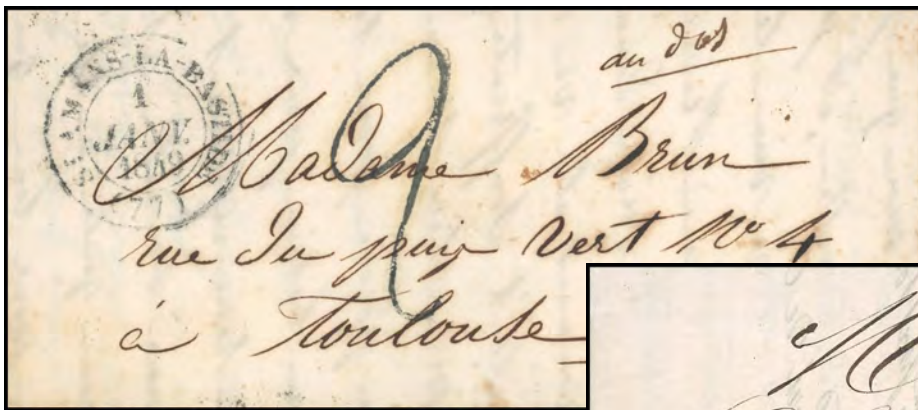 au dos
ST-AMANS-LA-BASTIDE
1
JANV.
1849
(77)
2
Madame Brun
rue du puiy Vert No 4
à Toulouse